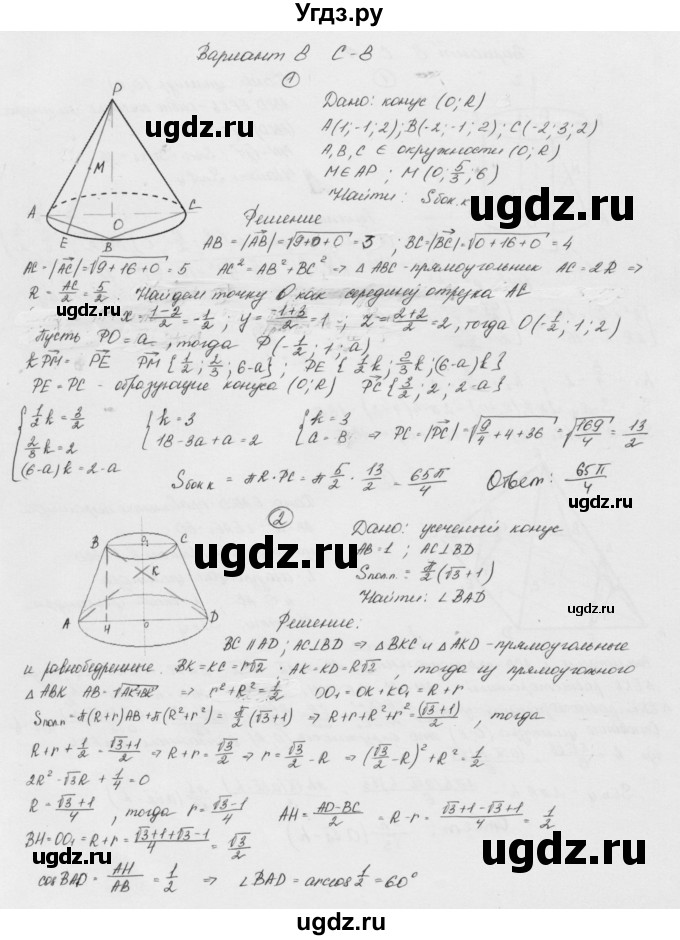 Угдз.ру
Вариант 8 С-8
1
Дано: конус (O; R)
A(1; -1; 2); B(-2; -1; 2); C(-2; 3; 2)
A, B, C ∈ окружности (O; R)
M ∈ AP; M (0; 5/3; 6)
Найти: Sбок.к
P
M
A
O
C
E
B
Решение
AB = |AB| = √9+0+0 = 3; BC = |BC| = √0+16+0 = 4
AC = |AC| = √9+16+0 = 5 AC² = AB² + BC² ⇒ △ABC - прямоугольник AC = 2R ⇒
R = AC/2 = 5/2. Найдем точку O как середину отрезка AC
x = (1-2)/2 = -1/2; y = (-1+3)/2 = 1; z = (2+2)/2 = 2, тогда O(-1/2; 1; 2)
Пусть PO = a, тогда P(-1/2; 1; a)
kPM = PE PM {1/2; 2/3; 6-a}; PE {1/2 k; 2/3 k; (6-a)k}
PE = PC - образующие конуса (O; R) PC {3/2; 2; 2-a}
{ 1/2 k = 3/2 { k = 3 { k = 3
2/3 k = 2 18 - 3a + a = 2 a = 8 ⇒ PC = |PC| = √9/4+4+36 = √169/4 = 13/2
(6-a)k = 2-a
Sбок к = πR·PC = π 5/2 · 13/2 = 65π/4 Ответ: 65π/4
2
Дано: усеченый конус
AB = 1; AC⊥BD
Sпол.п. = π/2 (√3+1)
Найти: ∠BAD
B
O₁
C
K
A
H
O
D
Решение:
BC ∥ AD; AC⊥BD ⇒ △BKC и △AKD - прямоугольные
и равнобедренные. BK = KC = r√2 · AK = KD = R√2, тогда из прямоугожного
△ABK AB = √AK²+BK² ⇒ r² + R² = 1/2 OO₁ = OK + KO₁ = R + r
Sпол.п = π(R+r)AB + π(R²+r²) = π/2 (√3+1) ⇒ R + r + R² + r² = (√3+1)/2, тогда
R + r + 1/2 = (√3+1)/2 ⇒ R + r = √3/2 ⇒ r = √3/2 - R ⇒ (√3/2 - R)² + R² = 1/2
2R² - √3R + 1/4 = 0
R = (√3+1)/4, тогда r = (√3-1)/4 AH = (AD-BC)/2 = R - r = (√3+1-√3+1)/4 = 1/2
BH = OO₁ = R + r = (√3+1+√3-1)/4 = √3/2
cos BAD = AH/AB = 1/2 ⇒ ∠BAD = arccos 1/2 = 60°
ugdz.ru
ugdz.ru
ugdz.ru
ugdz.ru
ugdz.ru
ugdz.ru
ugdz.ru
ugdz.ru
ugdz.ru
ugdz.ru
ugdz.ru
ugdz.ru